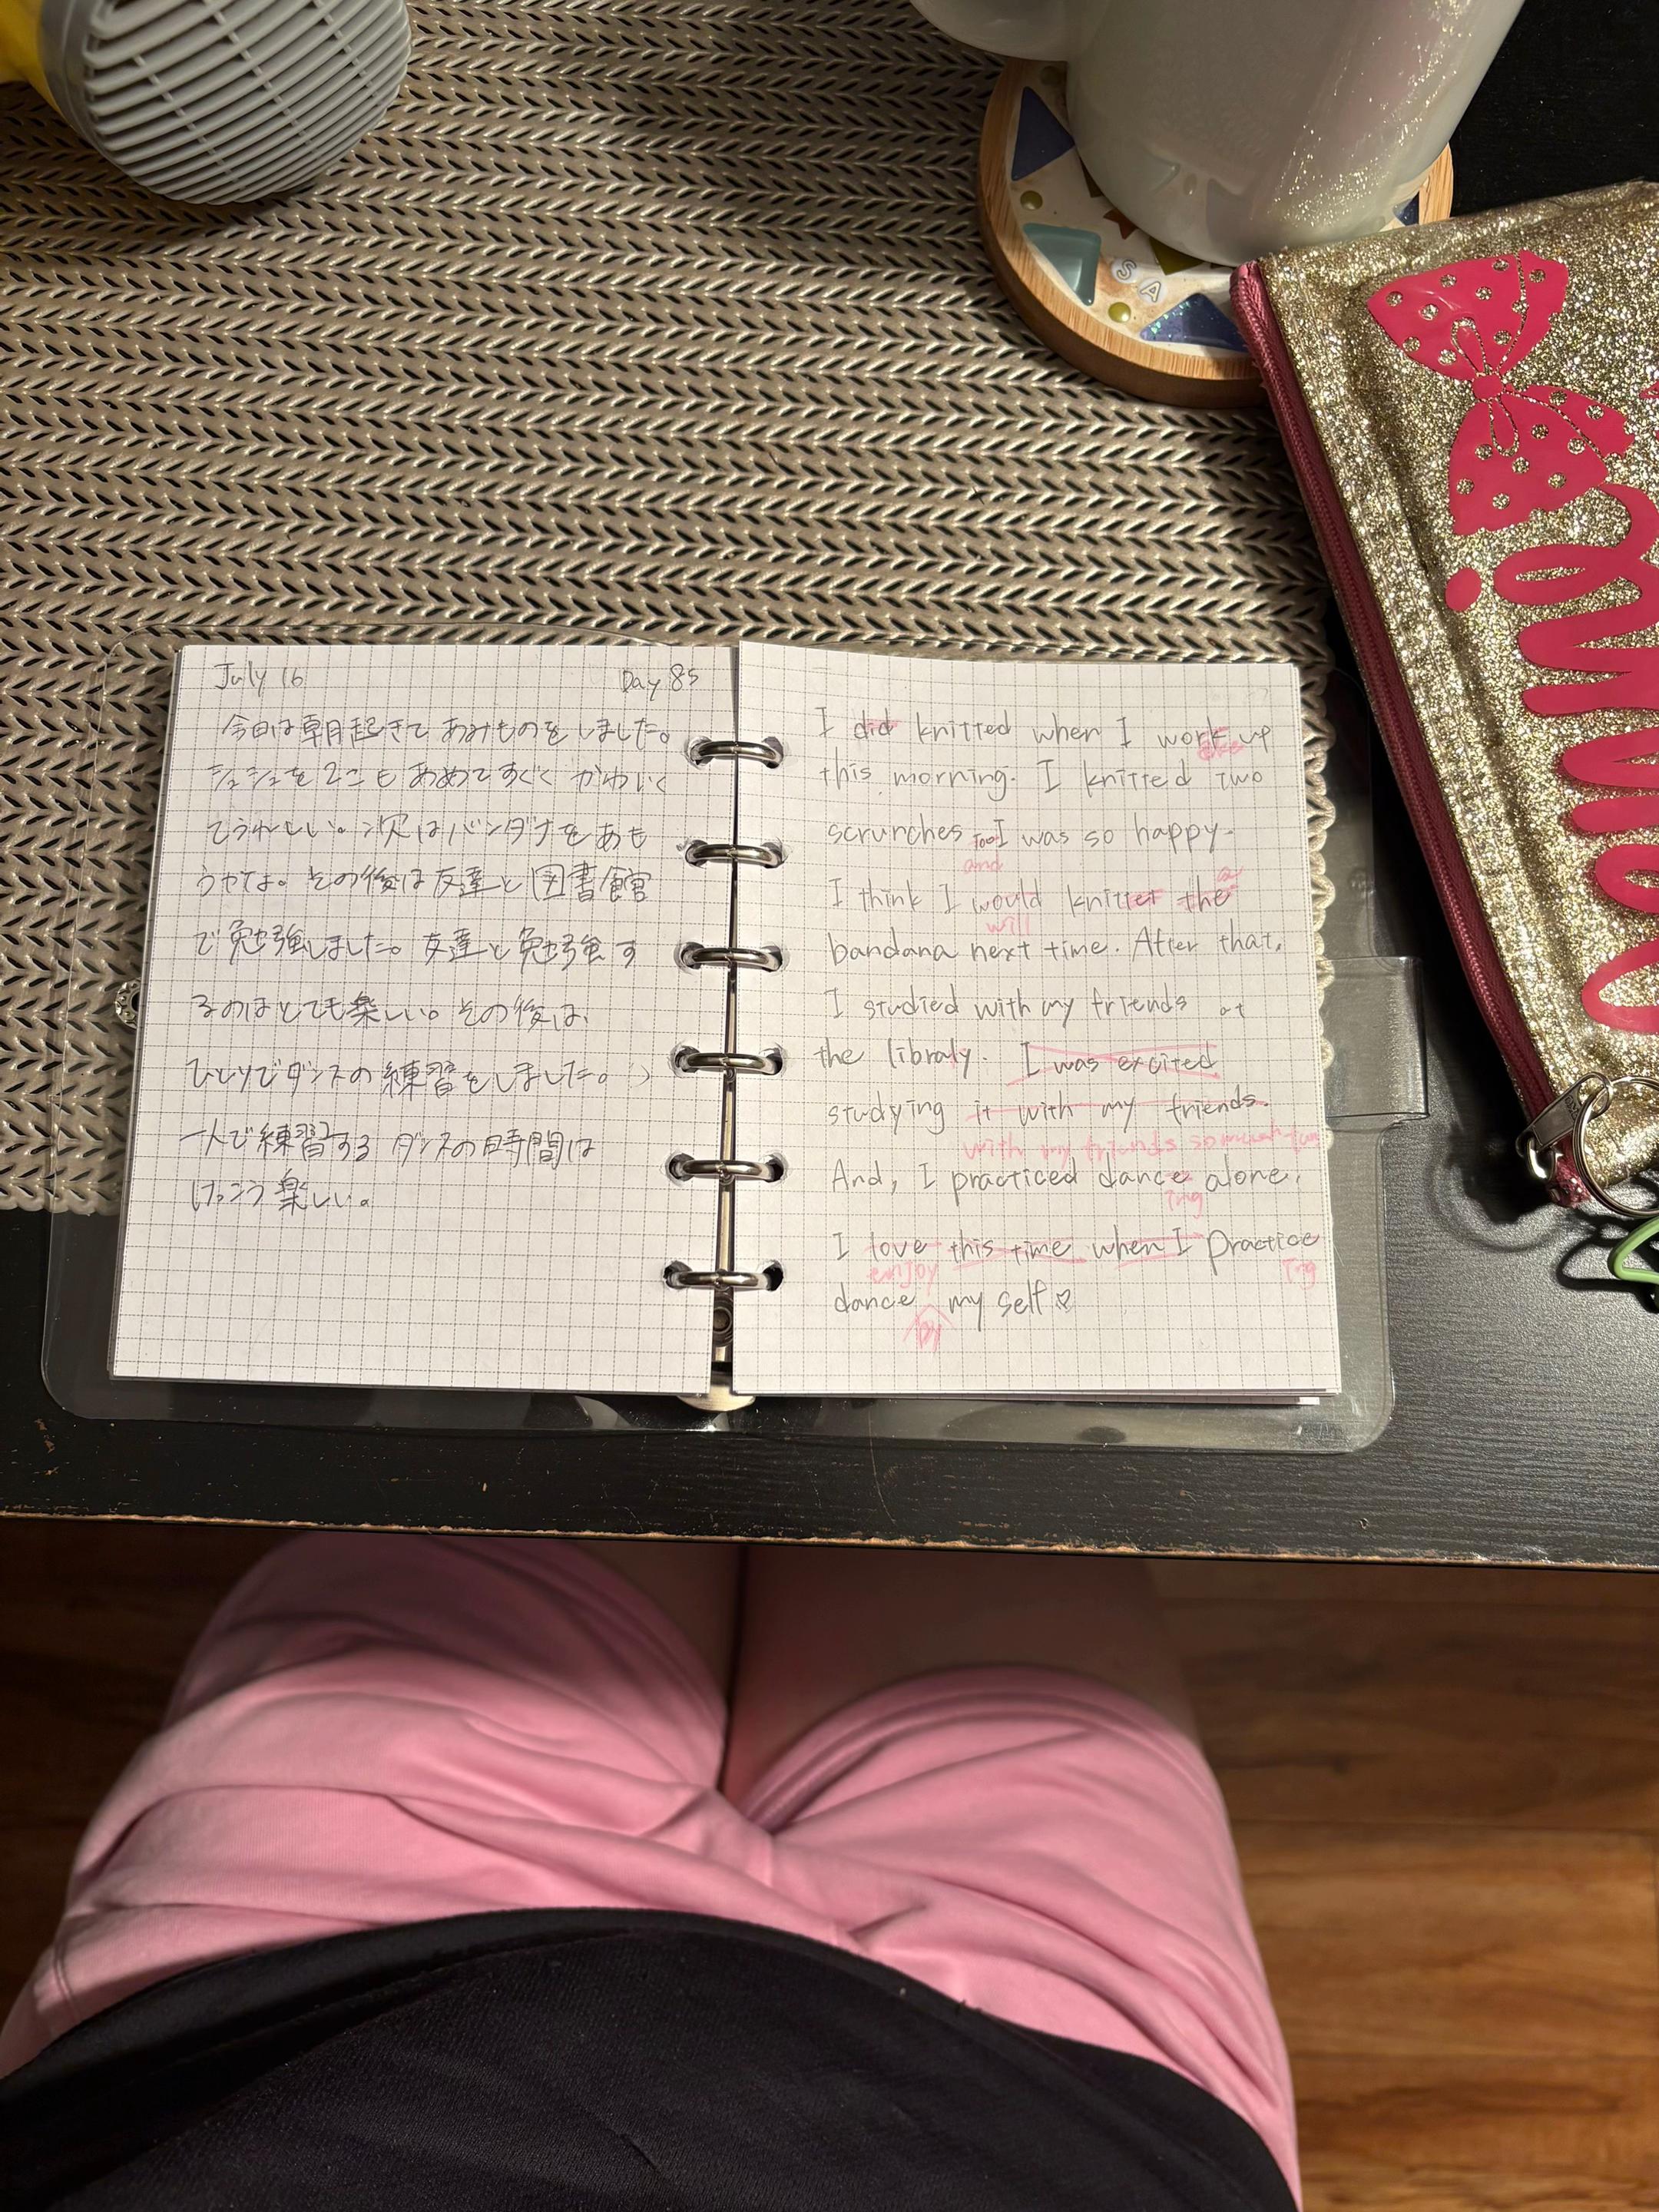 July 16 Day 85
今日は朝起きてあみものをしました。
シュシュを2こもあめてすごくかわいく
てうれしい。次はバンダナをあも
うかな。その後は友達と図書館
で勉強しました。友達と勉強す
るのはとても楽しい。その後は、
ひとりでダンスの練習をしました。
一人で練習するダンスの時間は
けっこう楽しい。
I did knitted when I work up
oke
this morning. I knitted two
scrunches too I was so happy.
and
a
I think I would knitter the
will
bandana next time. After that,
I studied with my friends at
the libraly. I was excited
studying it with my friends.
with my friends so much fun
And, I practiced dance alone.
ing
I love this time when I practice
enjoy ing
dance my self♡
by
SA
Minnie